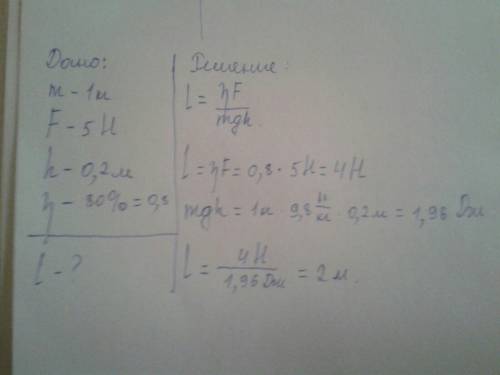 Дано:
m - 1к
F - 5 Н
h - 0,2 м
η - 80% = 0,8
l - ?
Решение:
l = ηF / mgh.
l = ηF = 0,8 · 5 Н = 4 Н
mgh = 1к · 9,8 н/кг · 0,2 м = 1,96 Дж
l = 4 Н / 1,96 Дж = 2 м.